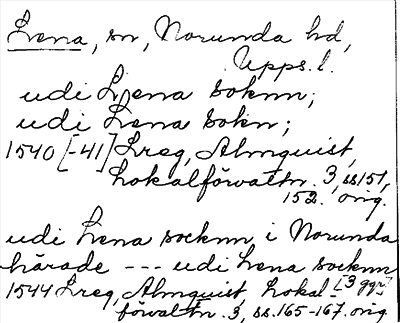 Lena, sn, Norunda hd,
Upps. l.
udi Liena soknn;
udi Lena sokn;
1540 [-41] Lreg, Almquist,
Lokalförvaltn. 3, ss 151,
152. orig.
udi Lena socknn i Norunda
härade --- udi Lena socknn
[3 ggr]
1544 Lreg, Almquist, Lokal-
förvaltn. 3, ss. 165-167. orig.